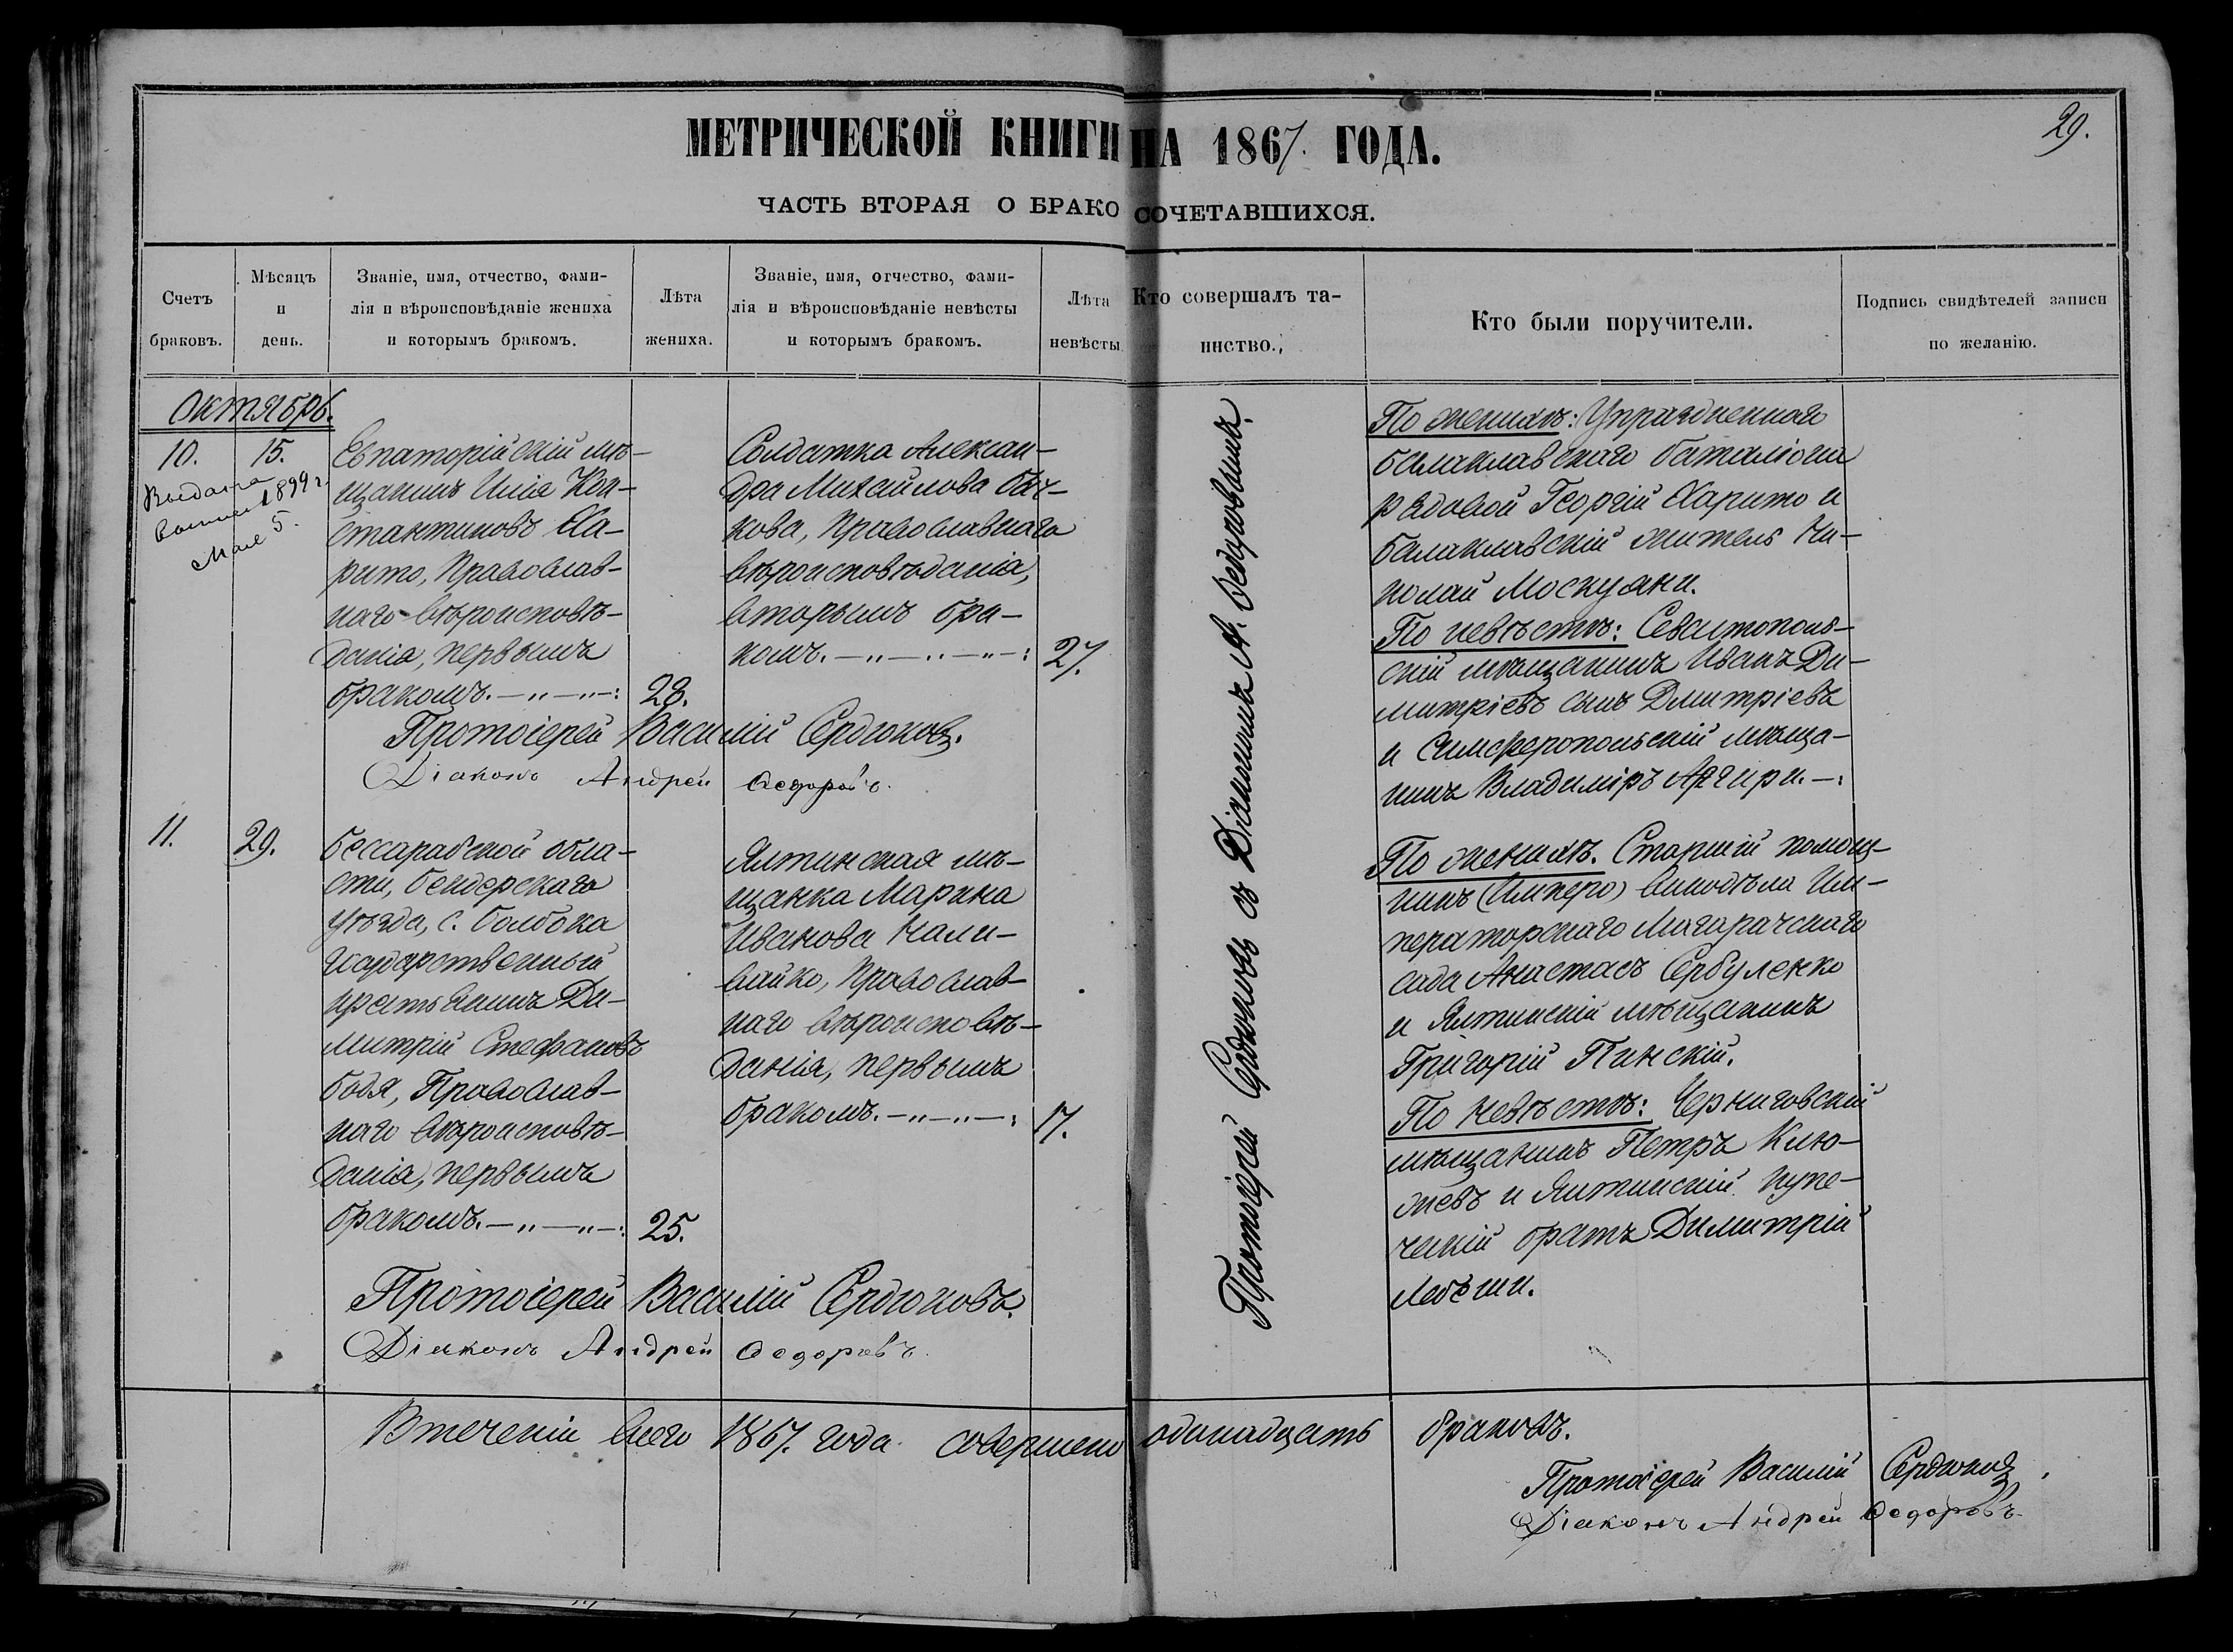 МЕТРИЧЕСКОЙ КНИГИ НА 1867. ГОДА.
29.
ЧАСТЬ ВТОРАЯ О БРАКОСОЧЕТАВШИХСЯ.
Счетъ
браковъ.
Мѣсяцъ
и
день.
Званіе, имя, отчество, фами-
лія и вѣроисповѣданіе жениха
и которымъ бракомъ.
Лѣта
жениха.
Званіе, имя, отчество, фами-
лія и вѣроисповѣданіе невѣсты
и которымъ бракомъ.
Лѣта
невѣсты
Кто совершалъ та-
инство.
Кто были поручители.
Подпись свидѣтелей записи
по желанію.
Октябрь.
10.
15.
Выдана
1899 г.
Мая 5.
Евпаторійскій мѣ-
щанинъ Илія Кон-
стантиновъ Ха-
рито, Православ-
наго вѣроисповѣ-
данія, первымъ
бракомъ. — „ — „ — :
28.
Солдатка Алексан-
дра Михайлова
кова, Православнаго
вѣроисповѣданія,
вторымъ бра-
комъ. — „ — „ — „ — :
27.
Протоіерей Василій Сердюковъ.
Діаконъ Андрей Ѳедоровъ.
Протоіерей Сердюковъ съ Діакономъ А. Ѳедоровымъ.
По женихѣ: Упраздненнаго
балаклавскаго баталіона
рядовой Георгій Харито и
балаклавскій житель Ни-
колай Москуяни.
По невѣстѣ: Севастополь-
скій мѣщанинъ Иванъ Ди-
митріевъ сынъ Дмитріевъ
и Симферопольскій мѣща-
нинъ Владиміръ Аргири. — :
11.
29.
Бессарабской обла-
сти, Бендерскаго
уѣзда, с. Болбока
государственный
крестьянинъ Ди-
митрій Стефановъ
Бодя, Православ-
наго вѣроисповѣ-
данія, первымъ
бракомъ. — „ — „ — :
25.
Ялтинская мѣ-
щанка Марина
Иванова Нали-
вайко, Православ-
наго вѣроисповѣ-
данія, первымъ
бракомъ. — „ — „ — :
17.
По женихѣ. Старшій помощ-
никъ (Имперо) винодѣла Им-
ператорскаго Магарачскаго
сада Анастасъ Сербуленко
и Ялтинскій мѣщанинъ
Григорій Пинскій.
По невѣстѣ: Черниговскій
мѣщанинъ Петръ Клю-
жевъ и Ялтинскій купе-
ческій братъ Димитрій
Протоіерей Василій Сердюковъ.
Діаконъ Андрей Ѳедоровъ.
Втеченіи всего 1867. года совершено одинадцать браковъ.
Протоіерей Василій Сердюковъ
Діаконъ Андрей Ѳедоровъ.